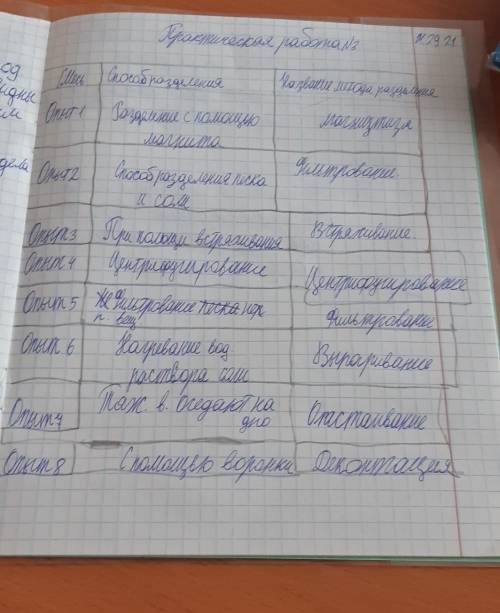 Практическая работа №3
Смесь Способ разделения Название метода разделения
Опыт 1 Разделение с помощью магнита магнитизм
Опыт 2 Способ разделения песка и соли Фильтрование.
Опыт 3 При помощи встряхивания Встряхивание.
Опыт 4 Центрифугирование Центрифугирование
Опыт 5 Фильтрование песка нер п. вещ Фильтрование
Опыт 6 Нагревание вод раствора соли Выпаривание
Опыт 7 Тяж. в. оседают на дно Отстаивание
Опыт 8 С помощью воронки Деконтация